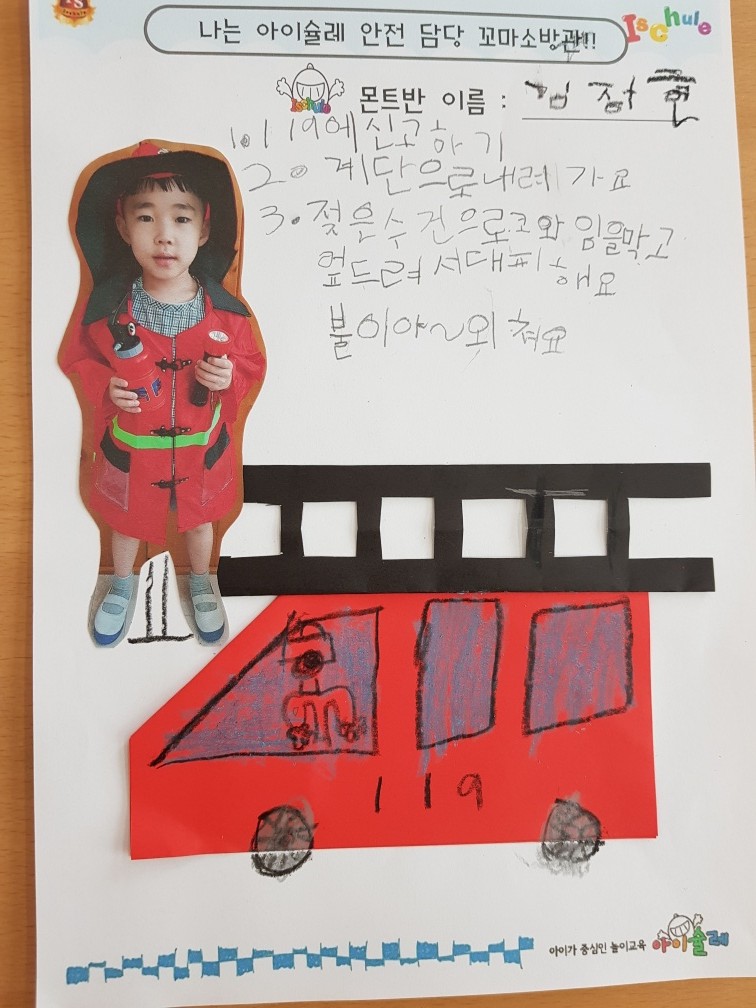 나는 아이슐레 안전 담당 꼬마소방관!!
Ischule
Ischule
몬트반 이름 : 김정현
1. 119에신고하기
2. 계단으로내려가요
3. 젖은수건으로코와입을막고
엎드려서대피해요
불이야~외쳐요
119
아이가 중심인 놀이교육 아이슐레